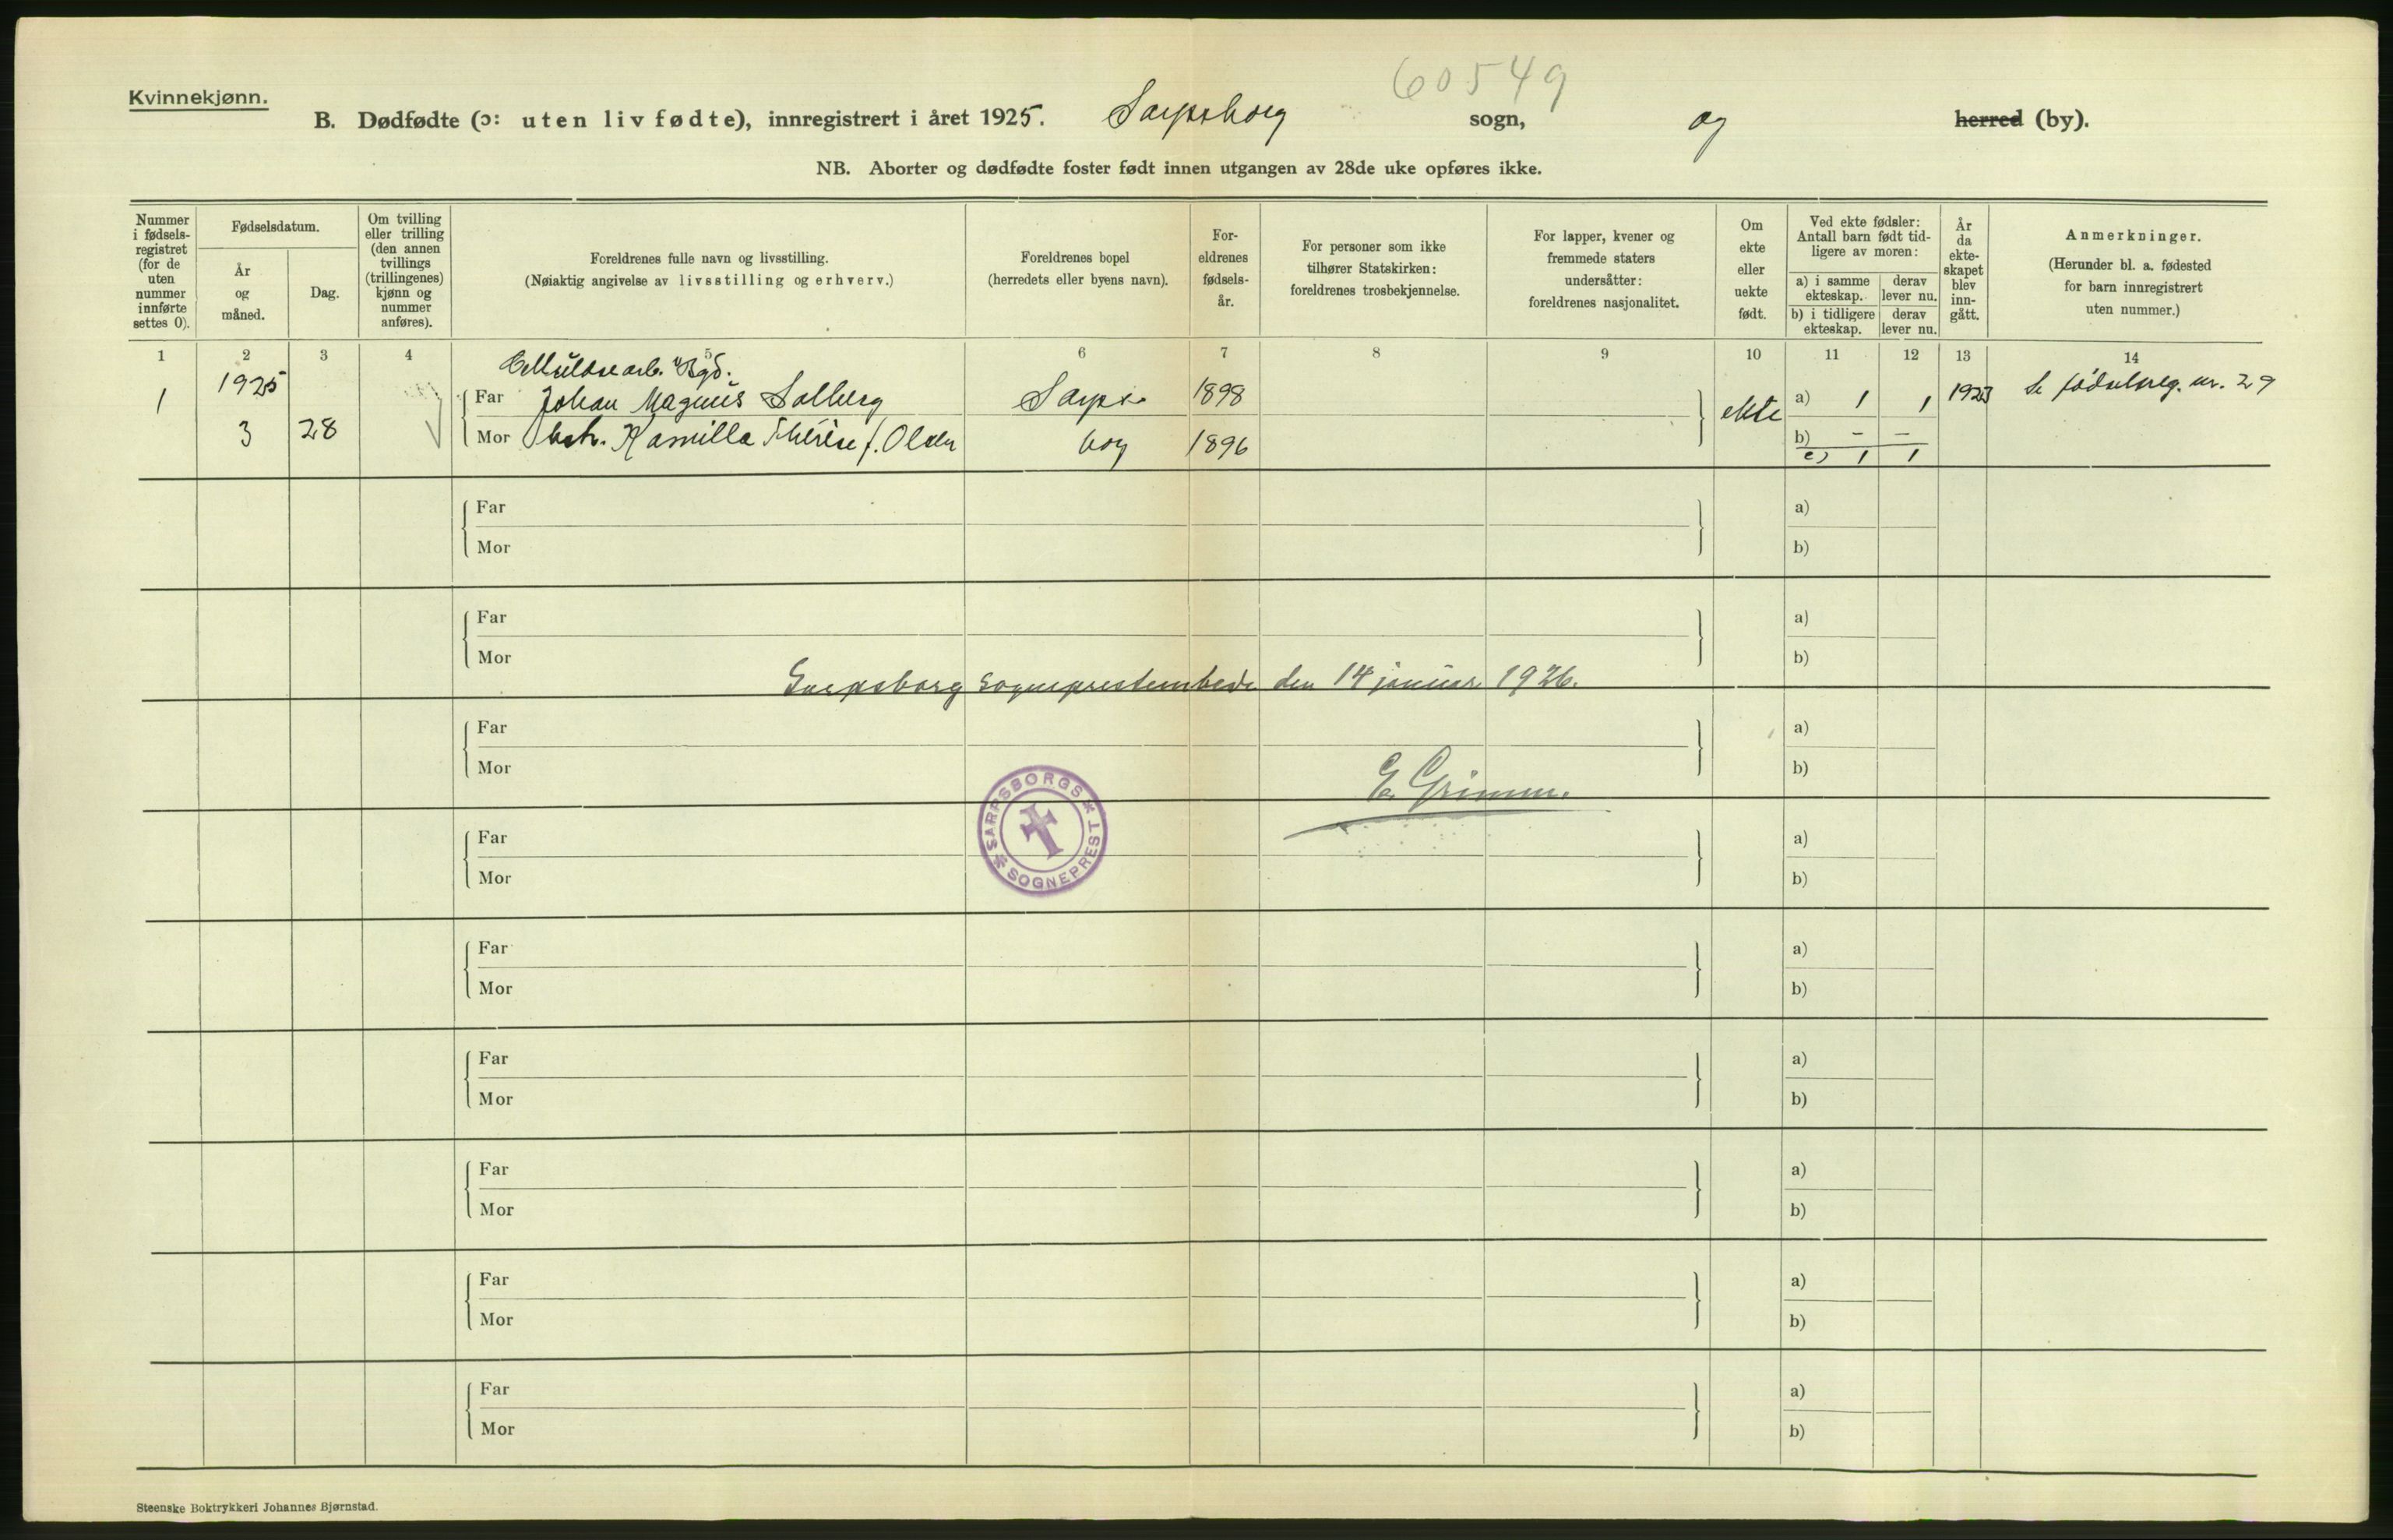 60549
Kvinnekjønn.
B. Dødfødte (ɔ: uten liv fødte), innregistrert i året 1925. Sarpsborg sogn, og herred (by).
NB. Aborter og dødfødte foster født innen utgangen av 28de uke opføres ikke.
Nummer i fødsels-registret (for de uten nummer innførte settes 0).
Fødselsdatum.
År og måned.
Dag.
Om tvilling eller trilling (den annen tvillings (trillingenes) kjønn og nummer anføres).
Foreldrenes fulle navn og livsstilling.
(Nøiaktig angivelse av livsstilling og erhverv.)
Foreldrenes bopel
(herredets eller byens navn).
For-eldrenes fødsels-år.
For personer som ikke tilhører Statskirken: foreldrenes trosbekjennelse.
For lapper, kvener og fremmede staters undersåtter: foreldrenes nasjonalitet.
Om ekte eller uekte født.
Ved ekte fødsler: Antall barn født tid-ligere av moren:
a) i samme ekteskap. derav lever nu.
b) i tidligere ekteskap. derav lever nu.
År da ekte-skapet blev inn-gått.
Anmerkninger.
(Herunder bl. a. fødested for barn innregistrert uten nummer.)
1 2 3 4 5 6 7 8 9 10 11 12 13 14
Cellulosearb.
1 1925 Far Johan Magnus Solberg Sarps- 1898 ekte a) 1 1 1923 Se fødselsreg. nr. 29
3 28 Mor hstr. Kamilla Thérèse f. Olsen borg 1896 b) – –
c) 1 1
Far a)
Mor b)
Far a)
Mor b)
Sarpsborg sogneprestembede den 14 januar 1926.
Far a)
Mor b)
E. Grimm.
SARPSBORGS * SOGNEPREST *
Far a)
Mor b)
Far a)
Mor b)
Far a)
Mor b)
Far a)
Mor b)
Far a)
Mor b)
Far a)
Mor b)
Steenske Boktrykkeri Johannes Bjørnstad.